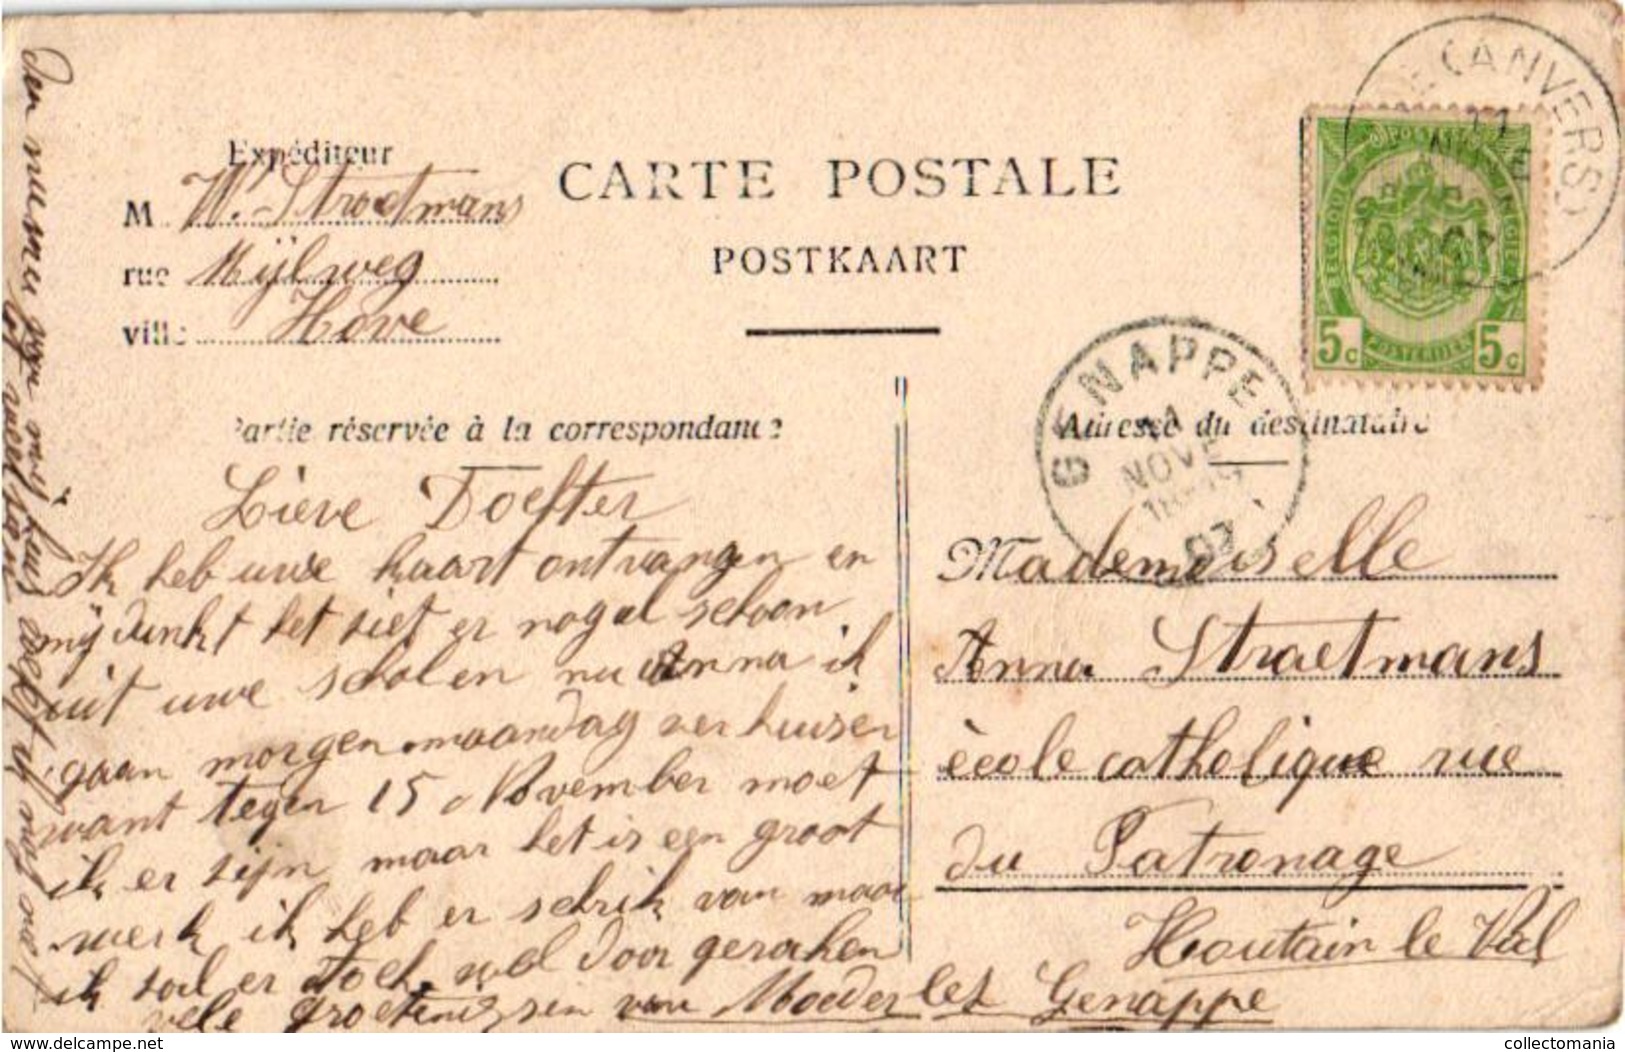 Expéditeur
M W. Straetmans
rue Mijlweg
ville Hove
CARTE POSTALE
POSTKAART
(ANVERS)
BELGIQUE
POSTERIJEN
5c 5c
GENAPPE
11
NOVE
07
Partie réservée à la correspondance
Adresse du destinataire
Lieve Dochter
Ik heb uwe kaart ontvangen en
mij dunkt het siet er nogal schoon
uit uwe scholen nu Anna ik
gaan morgen maandag verhuisen
want tegen 15 November moet
ik er zijn maar het is een groot
werk ik heb er schrik van maar
ik sal er toch wel door geraken
vele groetenissen van Moeder
Den numero van mij huis weet ik nog niet
of welken
Mademoiselle
Anna Straetmans
école catholique rue
du Patronage
Houtain le Val
lez Genappe
collectomania.com